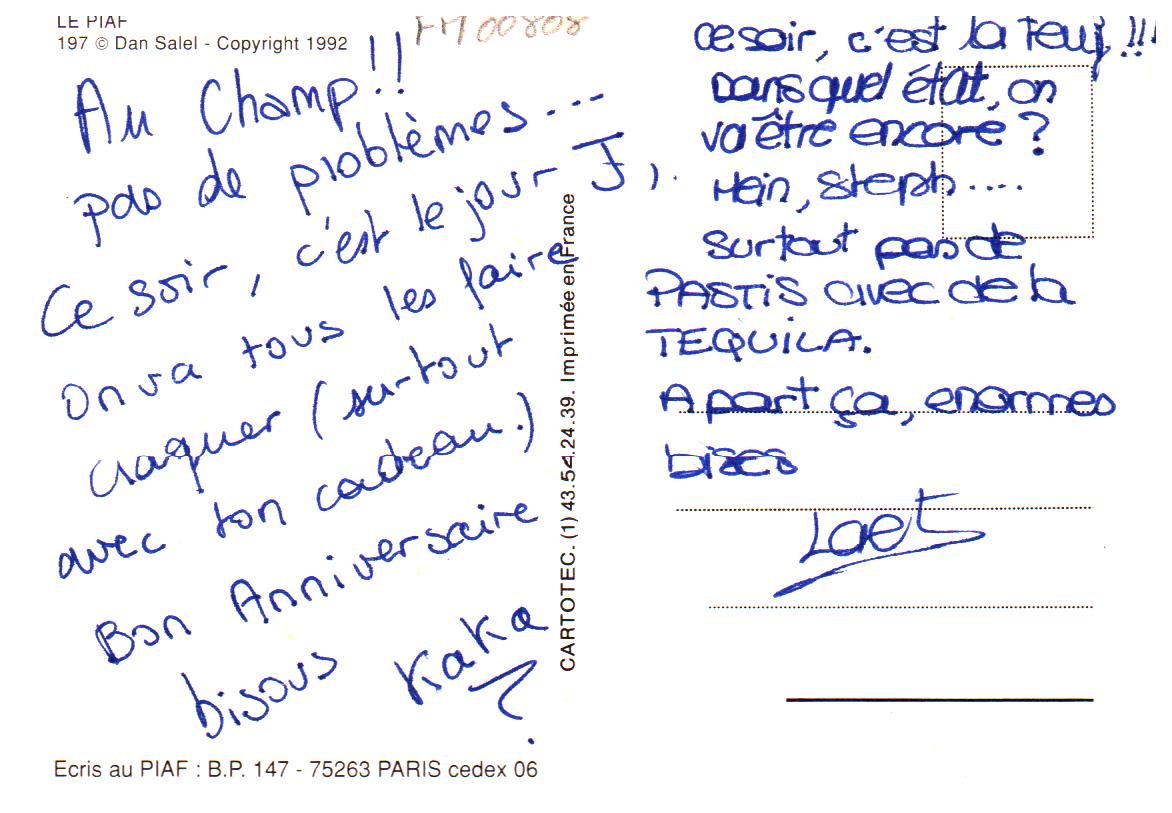 LE PIAF
197 © Dan Salel - Copyright 1992
FM00808
Au Champ!!
pas de problèmes...
Ce soir, c'est le jour J,
On va tous les faire
craquer (surtout
avec ton cadeau.)
Bon Anniversaire
bisous Kaka
CARTOTEC. (1) 43.54.24.39. Imprimée en France
Ecris au PIAF : B.P. 147 - 75263 PARIS cedex 06
ce soir, c'est la Teuf!!!
Dans quel état, on
va être encore ?
Hein, Steph....
surtout pas de
PASTIS avec de la
TEQUILA.
A part ça, enormes
bises
Laet